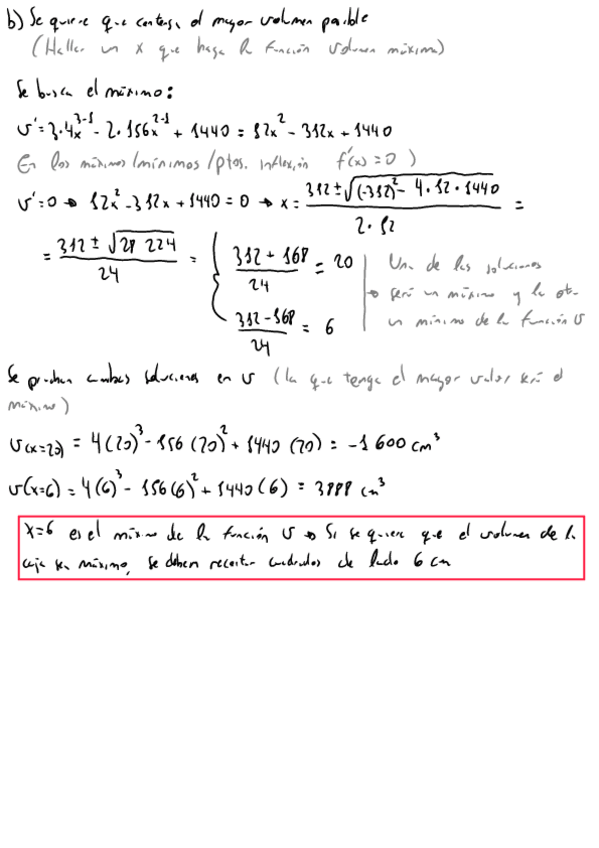 b) Se quiere que contenga el mayor volumen posible
(Hallar un x que haga la función volumen máxima)
Se busca el máximo:
v' = 3·4x^{3-1} - 2·156x^{2-1} + 1440 = 12x² - 312x + 1440
En los máximos/mínimos/ptos. inflexión f'(x) = 0)
v' = 0 → 12x² - 312x + 1440 = 0 → x = \frac{312 ± √((-312)² - 4·12·1440)}{2·12} =
= \frac{312 ± √28 224}{24} = { \frac{312 + 168}{24} = 20
\frac{312 - 168}{24} = 6
Una de las soluciones
→ será un máximo y la otr.
un mínimo de la función v
Se prueban ambas soluciones en v (la que tenga el mayor valor será el
máximo)
v(x=20) = 4(20)³ - 156(20)² + 1440(20) = -1 600 cm³
v(x=6) = 4(6)³ - 156(6)² + 1440(6) = 3888 cm³
x=6 es el máximo de la función v → Si se quiere que el volumen de la
caja sea máximo, se deben recortar cuadrados de lado 6 cm